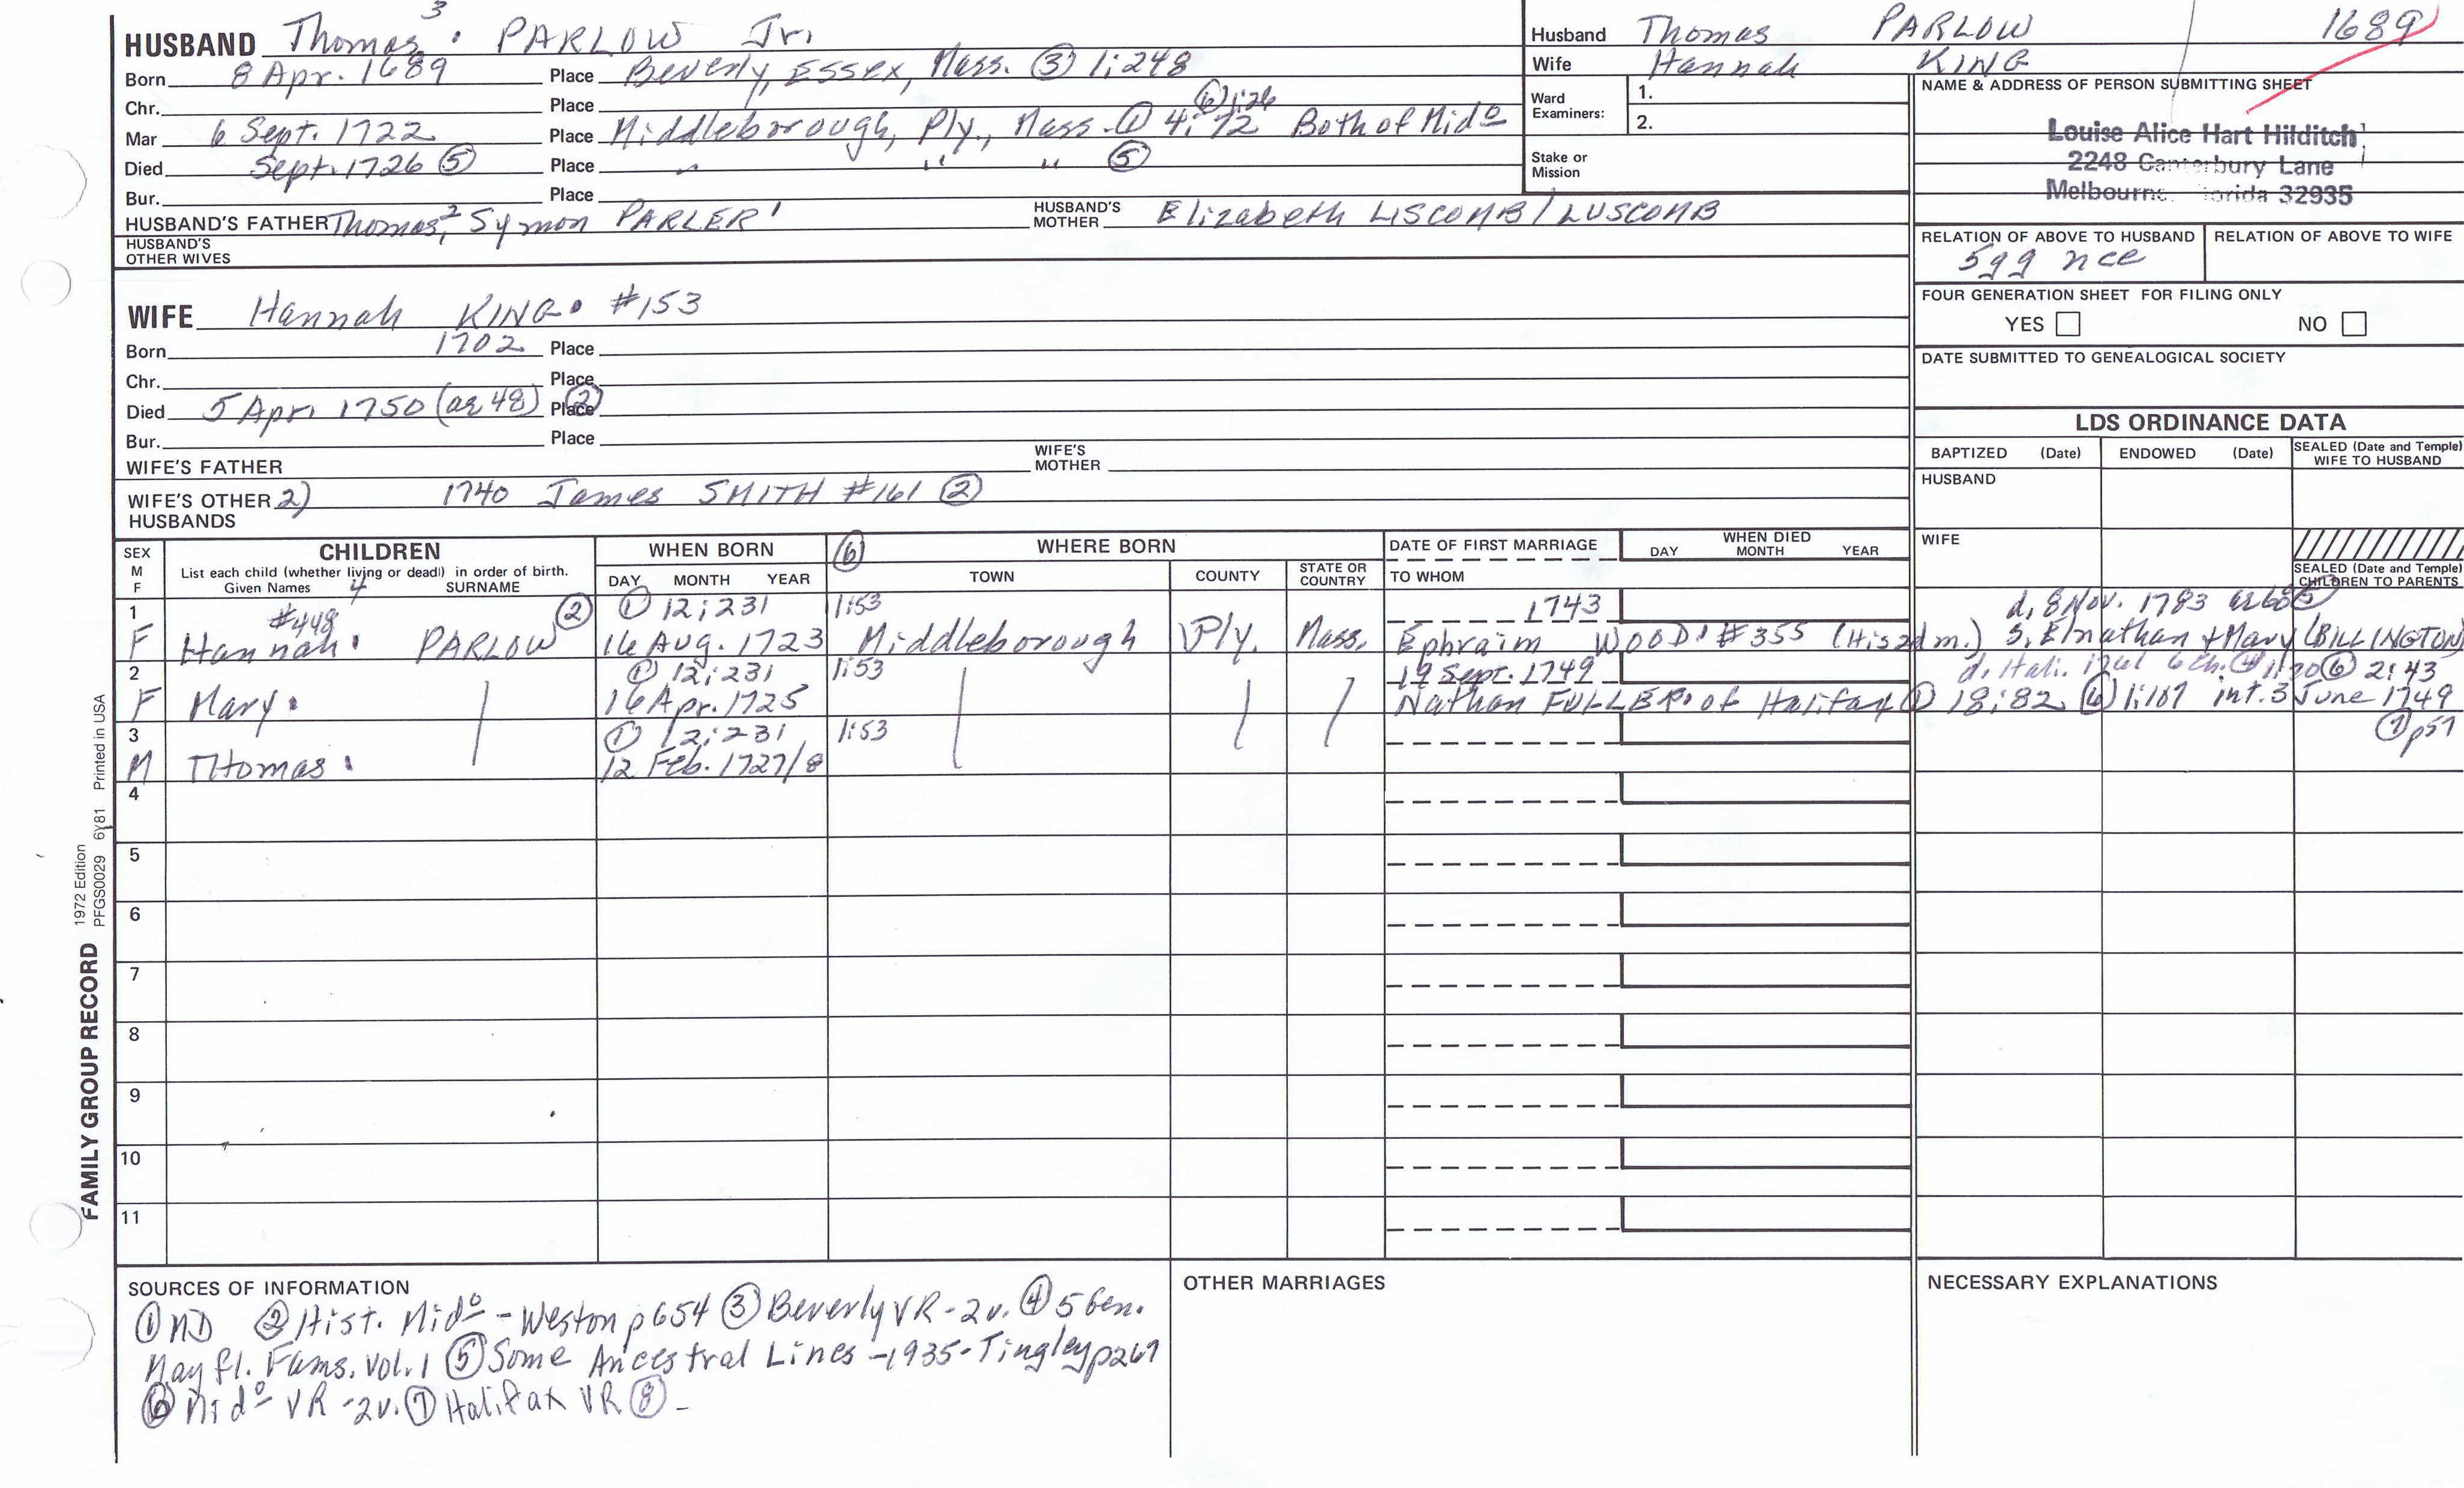 HUSBAND Thomas³ PARLOW Jr.
Born 8 Apr. 1689 Place Beverly, Essex, Mass. ③ 1:248
Chr. Place
⑥ 1:26
Mar 6 Sept. 1722 Place Middleborough, Ply., Mass. ① 4:72 Both of Mido
Died Sept. 1726 ⑤ Place " " " ⑤
Bur. Place
HUSBAND'S FATHER Thomas,² Symon PARLER¹ HUSBAND'S MOTHER Elizabeth LISCOMB/LUSCOMB
HUSBAND'S OTHER WIVES
Husband Thomas PARLOW 1689
Wife Hannah KING
Ward Examiners: 1.
2.
Stake or Mission
NAME & ADDRESS OF PERSON SUBMITTING SHEET
Louise Alice Hart Hilditch
2248 Canterbury Lane
Melbourne, Florida 32935
RELATION OF ABOVE TO HUSBAND RELATION OF ABOVE TO WIFE
5gg nce
FOUR GENERATION SHEET FOR FILING ONLY
YES NO
DATE SUBMITTED TO GENEALOGICAL SOCIETY
WIFE Hannah KING #153
Born 1702 Place
Chr. Place
Died 5 Apr. 1750 (ae 48) ② Place
Bur. Place
WIFE'S FATHER WIFE'S MOTHER
WIFE'S OTHER HUSBANDS 2) 1740 James SMITH #161 ②
LDS ORDINANCE DATA
BAPTIZED (Date) ENDOWED (Date) SEALED (Date and Temple) WIFE TO HUSBAND
HUSBAND
WIFE
SEALED (Date and Temple) CHILDREN TO PARENTS
SEX M F CHILDREN WHEN BORN ⑥ WHERE BORN DATE OF FIRST MARRIAGE WHEN DIED
List each child (whether living or dead) in order of birth.
Given Names 4 SURNAME DAY MONTH YEAR TOWN COUNTY STATE OR COUNTRY TO WHOM DAY MONTH YEAR
1 #448 ② ① 12:231 1:53 1743 d. 8 Nov. 1783 ae 68 ⑤
F Hannah PARLOW 16 Aug. 1723 Middleborough Ply. Mass. Ephraim WOOD #355 (His 2d m.) S. Elnathan + Mary (BILLINGTON)
2 ① 12:231 1:53 19 Sept. 1749 d. Hali. 6 ch. ④ ⑥ 2:43
F Mary 16 Apr. 1725 Nathan FULLER of Halifax ① 18:82 ⑥ 1:107 int. 3 June 1749
3 ① 12:231 1:53 ⑦ p57
M THomas 12 Feb. 1727/8
4
5
6
7
8
9
10
11
FAMILY GROUP RECORD 1972 Edition PFGS0029 6/81 Printed in USA
SOURCES OF INFORMATION
① MD ② Hist. Mido - Weston p654 ③ Beverly VR - 2v. ④ 5 Gen.
Mayfl. Fams. Vol. 1 ⑤ Some Ancestral Lines - 1935 - Tingley p267
⑥ Mido VR - 2v. ⑦ Halifax VR ⑧ -
OTHER MARRIAGES
NECESSARY EXPLANATIONS